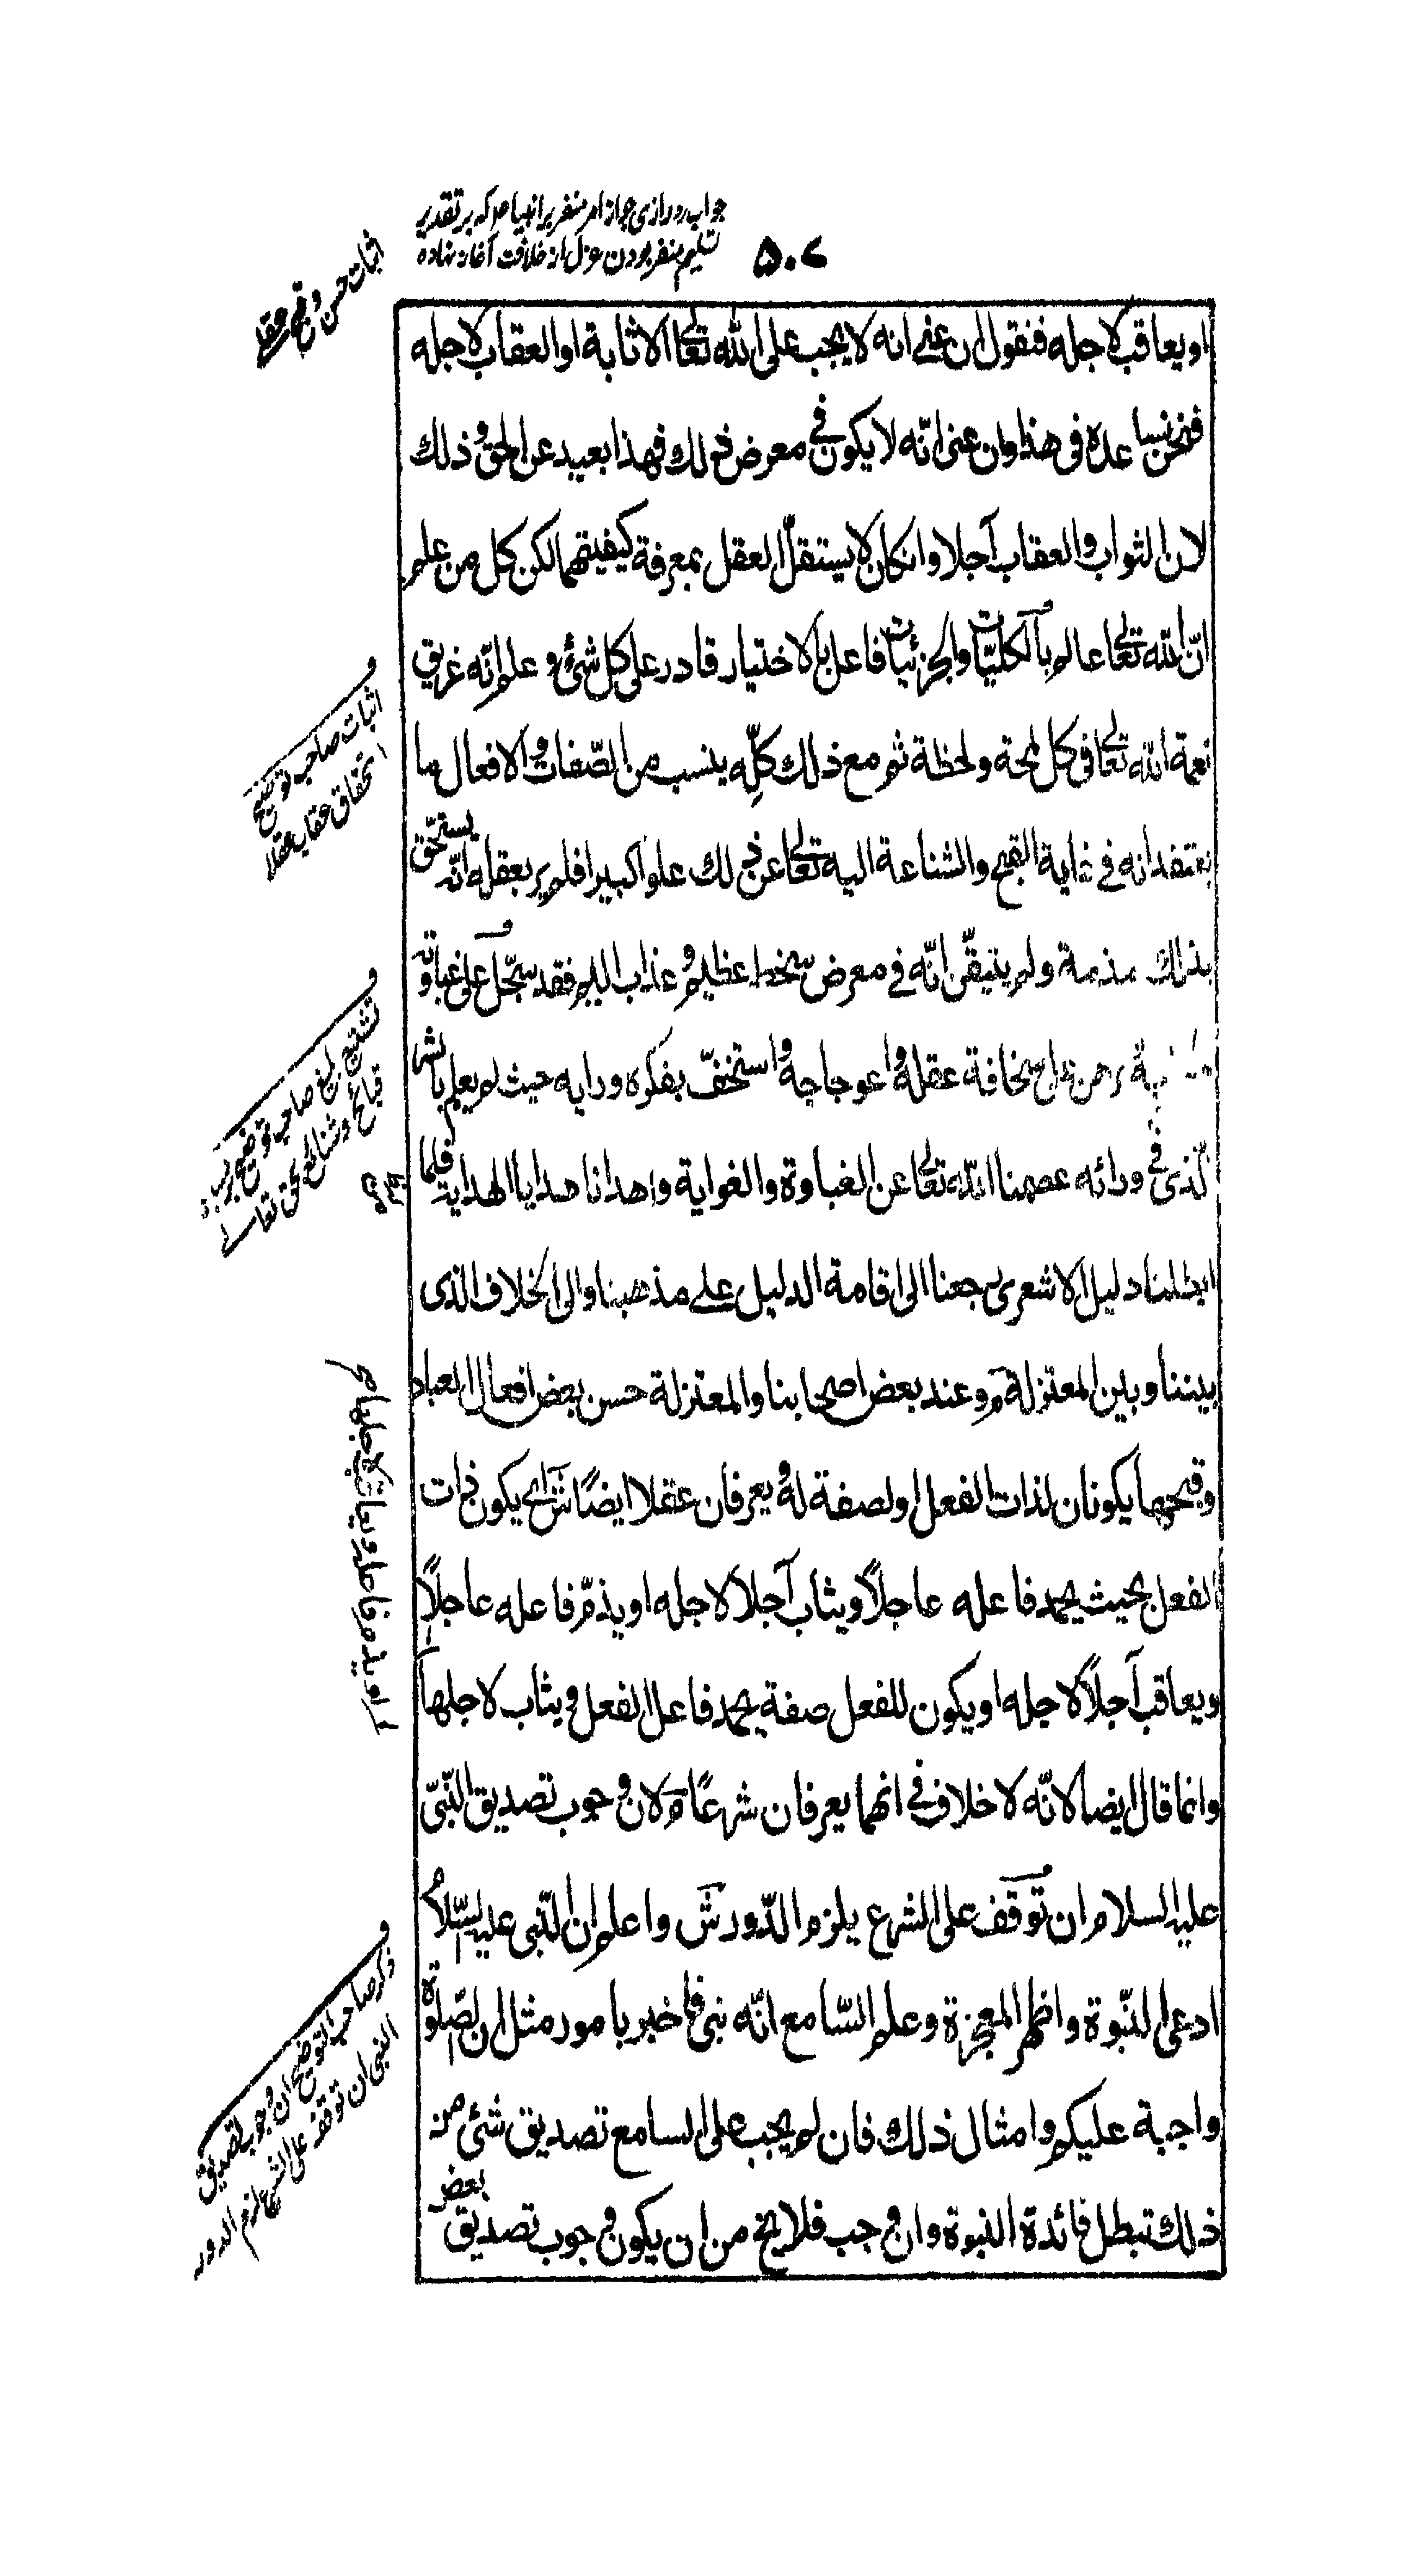 جواب رد رازی جواز امر منفر بر انبیا را که بر تقدیر
تسلیم منفر بودن عزل از خلافت آغاز نهاده
۵۰۷
اثبات حسن و قبح عقلا
او يعاقب لاجله فنقول ان عنى انه لا يجب على الله تعالى الاثابة او العقاب لاجله
فنحن نساعده فى هذا وان عنى انّه لا يكون فى معرض ذلك فهذا بعيد عن الحق و ذلك
لان الثواب والعقاب آجلا وانكان لا يستقلّ العقل بمعرفة كيفيتهما لكن كل من علم
انّ الله تعالى عالم بالكليّات والجزئيات فاعل بالاختيار قادر على كل شئ و علم انّه غريق
نعمة الله تعالى فى كل لمحة ولحظة ثم مع ذلك كلّه ينسب من الصّفات والافعال ما
يعتقد انه فى غاية القبح والشناعة اليه تعالى عن ذلك علوا كبيرا فلم ير بعقله انّه يستحقّ
بذلك مذمة ولم يتيقّن انّه فى معرض سخط عظيم و عذاب اليم فقد سجّل على غباوته
برهن على سخافة عقله واعوجاجه واستخفّ بفكره ورايه حيث لم يعلم بالشر
الّذى فى ورائه عصمنا الله تعالى عن الغباوة والغواية واهدانا هدايا الهداية فلما
ابطلنا دليل الاشعرى رجعنا الى اقامة الدليل على مذهبنا والى الخلاف الذى
بيننا وبين المعتزلة م وعند بعض اصحابنا والمعتزلة حسن بعض افعال العباد
وقبحها يكونان لذات الفعل او لصفة له و يعرفان عقلا ايضًا ش اى يكون ذات
الفعل بحيث يحمد فاعله عاجلًا ويثاب آجلا لاجله او يذمّ فاعله عاجلًا
ويعاقب آجلًا لاجله او يكون للفعل صفة يحمد فاعل الفعل ويثاب لاجلها
وانما قال ايضا لانّه لا خلاف فى انهما يعرفان شرعًا م لان وجوب تصديق النّبىّ
عليه السلام ان توقف على الشرع يلزم الدّور ش واعلم ان النّبى عليه السّلام
ادعى النّبوة واظهر المعجزة وعلم السّامع انّه نبى فاخبر بامور مثل ان الصّلوة
واجبة عليكم وامثال ذلك فان لم يجب على السامع تصديق شئ من
ذلك تبطل فائدة النبوة وان وجب فلا يخ من ان يكون وجوب تصديق بعض
اثبات صاحب توضیح
استحقاق عقاب عقلا
تشنیع بلیغ صاحب توضیح بر
قبائح و شنائع بحق تعالے
او يذم فاعله ويعاقب لاجلها
ذكر صاحب التوضيح ان وجوب تصديق
النبى ان توقف على الشرع لزم الدور